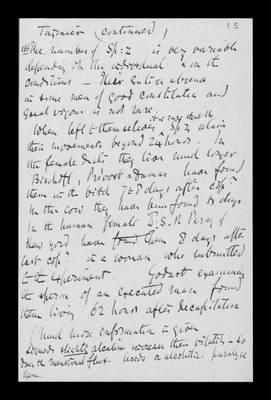 Tarnier (continued)
F.5
The number of Sp:z is very variable
depending on the individual & on the
conditions – Their entire absence
in some men of good constitution and
great vigour is not rare.
When left to themselves, Spz retain
their movements beyond 24 hours. In
the female ducts they live much longer
Bischoff, Prévost & Dumas have found
them in the bitch 7 & 8 days after copn
In the cow they have been found 6 days
In the human female D. S. R. Percy of
New York have found them 8 days after
last copn in a woman who submitted
to the experiment. Godart examining
the sperm of an executed man found
them living 62 hours after decapitation
(Much more information is given
Liquids slightly alcaline increase their vitality – so
does the menstrual flux. Acids or alcoholic paralyse
them.